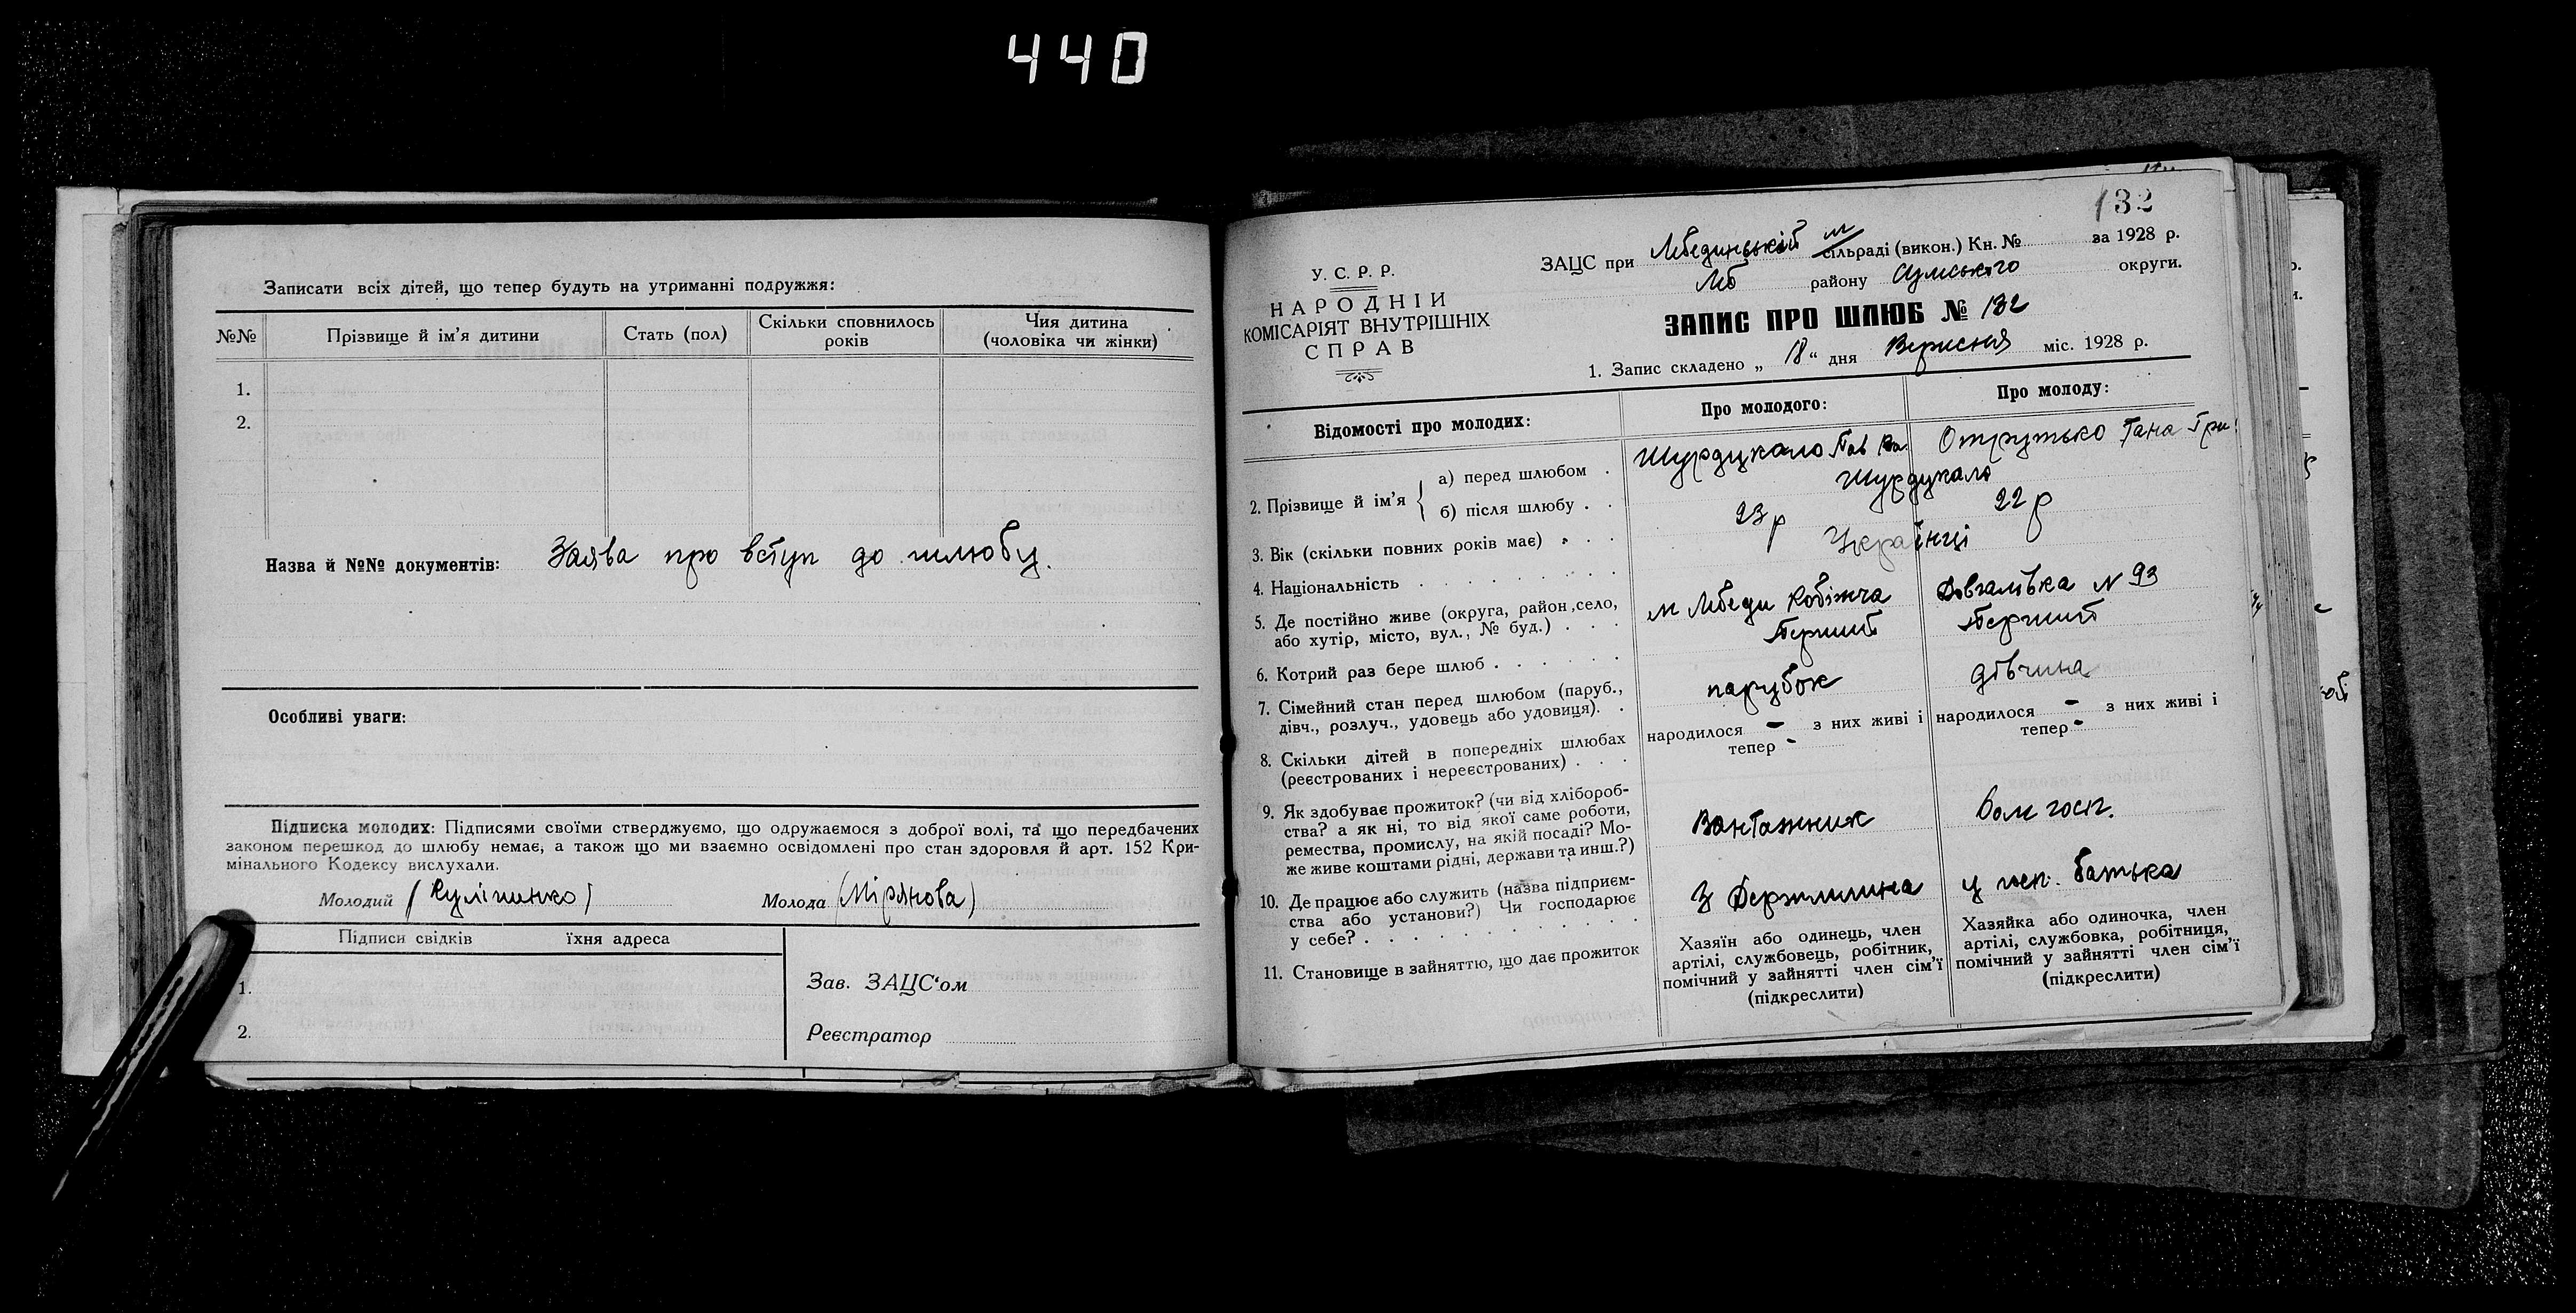 440
Записати всіх дітей, що тепер будуть на утриманні подружжя:
№№ Прізвище й ім'я дитини Стать (пол) Скільки сповнилось років Чия дитина (чоловіка чи жінки)
1.
2.
Назва й №№ документів: Заява про вступ до шлюбу.
Особливі уваги:
Підписка молодих: Підписями своїми стверджуємо, що одружаємося з доброї волі, та що передбачених
законом перешкод до шлюбу немає, а також що ми взаємно освідомлені про стан здоровля й арт. 152 Кри-
мінального Кодексу вислухали.
Молодий (Куліпенко) Молода (Мірянова)
Підписи свідків їхня адреса
1.
2.
Зав. ЗАЦС'ом
Реєстратор
132
У. С. Р. Р.
НАРОДНІИ
КОМІСАРІЯТ ВНУТРІШНІХ
СПРАВ
ЗАЦС при Лебединській м сільраді (викон.) Кн. № за 1928 р.
Леб району Сумського округи.
ЗАПИС ПРО ШЛЮБ № 132
1. Запис складено „ 18 “ дня Вересня міс. 1928 р.
Відомості про молодих: Про молодого: Про молоду:
2. Прізвище й ім'я { а) перед шлюбом . Шурдукало Пав Отрутько Гри
б) після шлюбу . . Шурдукало
3. Вік (скільки повних років має) . . . 23 р 22 р
4. Національність Українці
5. Де постійно живе (округа, район, село,
або хутір, місто, вул., № буд.) . . . м Лебеди Кобижча Довгалівка N 93
6. Котрий раз бере шлюб . . . . . . Перший Перший
7. Сімейний стан перед шлюбом (паруб.,
дівч., розлуч., удовець або удовиця). . парубок дівчина
8. Скільки дітей в попередніх шлюбах
(реєстрованих і нереєстрованих) . . . народилося - з них живі і тепер - народилося - з них живі і тепер -
9. Як здобуває прожиток? (чи від хлібороб-
ства? а як ні, то від якої саме роботи,
ремества, промислу, на якій посаді? Мо-
же живе коштами рідні, держави та инш.?) Вантажник Дом госп.
10. Де працює або служить (назва підприєм-
ства або установи?) Чи господарює
у себе? . . . . . . . . . . З Держмлина у госп. батька
11. Становище в зайняттю, що дає прожиток
Хазяїн або одинець, член
артілі, службовець, робітник,
помічний у зайнятті член сім'ї
(підкреслити)
Хазяйка або одиночка, член
артілі, службовка, робітниця,
помічний у зайнятті член сім'ї
(підкреслити)